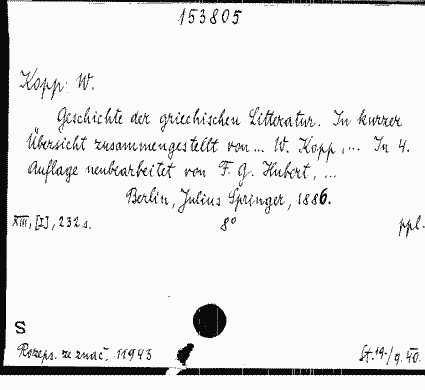 153805
Kopp W.
Geschichte der griechischen Litteratur. In kurzer
Übersicht zusammengestellt von ... W. Kopp, ... In 4.
Auflage neubearbeitet von F. G. Hubert, ...
Berlin, Julius Springer, 1886.
XIII, [I], 232 s. 8° ppl.
S
Rozeps. ze znač. 11943